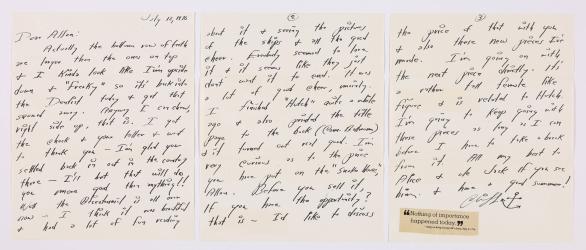 July 10, 1976
Dear Allan:
Actually the bottom row of teeth
are larger then the ones on top
+ I kinda look like I'm upside
down + "freaky" so it's back into
the Dentist today + get that
seemed away. Anyway I can chew,
right side up, that is. I got
the check + your letter + want
to thank you — I'm glad you
settled back in out in the country
there — I'll bet that will do
you more good than anything!!
Well the Bicentennial is all over
now — I think it was beautiful
+ had a lot of fun reading
②
about it + seeing the pictures
of the ships + all the good
cheer. Everybody seemed to love
it + it seems like they just
don't want it to end. It was
a lot of good cheer, mainly.
I finished "Hutch" quite a while
ago + also printed the title
page to the book
+ it turned out real good. I'm
very curious as to the price
you have put on the "Snake House,"
Allan. Before you sell it,
If you have the opportunity?
that is — I'd like to discuss
③
the price of that with you
+ also those new pieces I've
made. I'm going on with
the next piece shortly. It's
a rather tall female like
figure + is related to Hutch.
I'm going to keep going with
these pieces as long as I can
before I have to take a break
from it. All my best to
Alice + do
him + have a good summer!
"Nothing of importance
happened today."